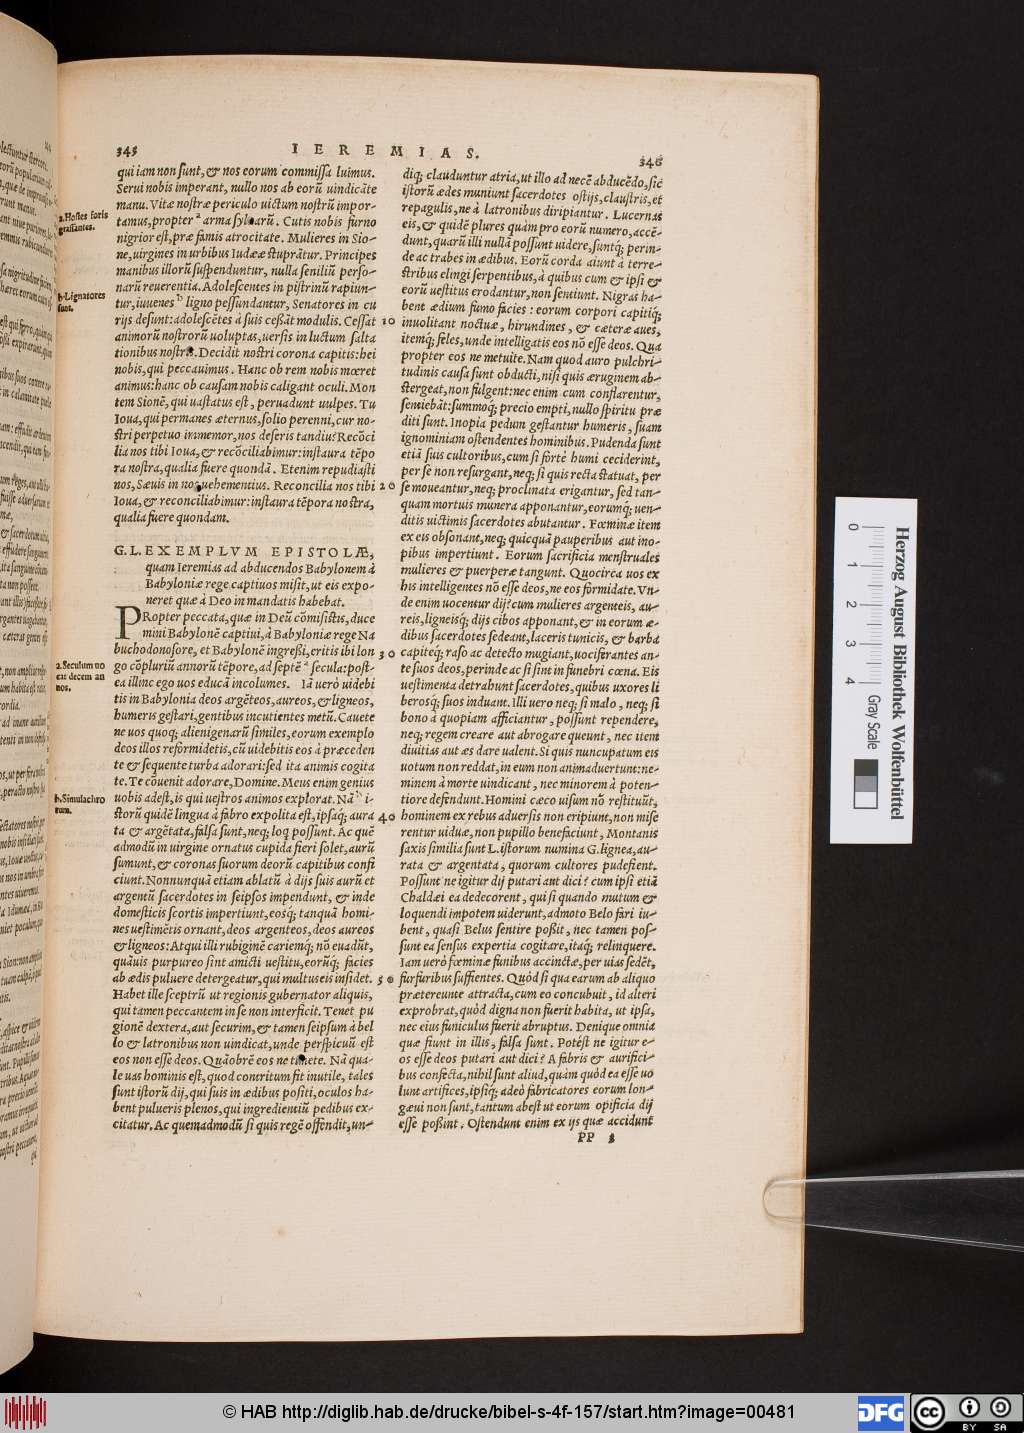 345
IEREMIAS.
346
qui iam non sunt, & nos eorum commissa luimus.
Serui nobis imperant, nullo nos ab eorũ uindicãte
manu. Vitæ nostræ periculo uictum nostrũ impor-
tamus, propter ᵃ arma syluarũ. Cutis nobis furno
nigrior est, præ famis atrocitate. Mulieres in Sio-
ne, uirgines in urbibus Iudææ stuprãtur. Principes
manibus illorũ suspenduntur, nulla seniliũ perso-
narũ reuerentia. Adolescentes in pistrinũ rapiun-
tur, iuuenes ᵇ ligno pessundantur, Senatores in cu
rijs desunt: adolescẽtes à suis cessãt modulis. Cessat
animorũ nostrorũ uoluptas, uersis in luctum salta
tionibus nostris. Decidit nostri corona capitis: hei
nobis, qui peccauimus. Hanc ob rem nobis mœret
animus: hanc ob causam nobis caligant oculi. Mon
tem Sionẽ, qui uastatus est, peruadunt uulpes. Tu
Ioua, qui permanes æternus, solio perenni, cur no-
stri perpetuo immemor, nos deseris tandiu? Recõci
lia nos tibi Ioua, & recõciliabimur: instaura tẽpo
ra nostra, qualia fuere quondã. Etenim repudiasti
nos, Sæuis in nos uehementius. Reconcilia nos tibi
Ioua, & reconciliabimur: instaura tẽpora nostra,
qualia fuere quondam.
G.L. EXEMPLVM EPISTOLÆ,
quam Ieremias ad abducendos Babylonem à
Babyloniæ rege captiuos misit, ut eis expo-
neret quæ à Deo in mandatis habebat.
PRopter peccata, quæ in Deũ cõmisistis, duce
mini Babylonẽ captiui, à Babyloniæ rege Na
buchodonosore, et Babylonẽ ingreßi, eritis ibi lon
go cõpluriũ annorũ tẽpore, ad septẽ ᵃ secula: post-
ea illinc ego uos educã incolumes. Iã uerò uidebi
tis in Babylonia deos argẽteos, aureos, & ligneos,
humeris gestari, gentibus incutientes metũ. Cauete
ne uos quoq; alienigenarũ similes, eorum exemplo
deos illos reformidetis, cũ uidebitis eos à præceden
te & sequente turba adorari: sed ita animis cogita
te. Te cõuenit adorare, Domine. Meus enim genius
uobis adest, is qui uestros animos explorat. Nã ᵇ i-
storũ quidẽ lingua à fabro expolita est, ipsaq; aura
ta & argẽtata, falsa sunt, neq; loq possunt. Ac quẽ
admodũ in uirgine ornatus cupida fieri solet, aurũ
sumunt, & coronas suorum deorũ capitibus confi
ciunt. Nonnunquã etiam ablatũ à dijs suis aurũ et
argentũ sacerdotes in seipsos impendunt, & inde
domesticis scortis impertiunt, eosq; tanquã homi-
nes uestimẽtis ornant, deos argenteos, deos aureos
& ligneos: Atqui illi rubiginẽ cariemq; nõ euadũt,
quãuis purpureo sint amicti uestitu, eorũq; facies
ab ædis puluere detergeatur, qui multus eis insidet.
Habet ille sceptrũ ut regionis gubernator aliquis,
qui tamen peccantem in se non interficit. Tenet pu
gionẽ dextera, aut securim, & tamen seipsum à bel
lo & latronibus non uindicat, unde perspicuũ est
eos non esse deos. Quãobrẽ eos ne timete. Nã qua-
le uas hominis est, quod contritum fit inutile, tales
sunt istorũ dij, qui suis in ædibus positi, oculos ha-
bent pulueris plenos, qui ingredientiũ pedibus ex-
citatur. Ac quemadmodũ si quis regẽ offendit, un-
a. Hostes foris
grassantes.
b. Lignatores
sunt.
a. Seculum uo
cat decem an
nos.
b. Simulachro
rum.
10
20
30
40
50
diq; clauduntur atria, ut illo ad necẽ abducẽdo, sic
istorũ ædes muniunt sacerdotes ostijs, claustris, et
repagulis, ne à latronibus diripiantur. Lucernas
eis, & quidẽ plures quàm pro eorũ numero, accẽ-
dunt, quarũ illi nullã possunt uidere, suntq; perin-
de ac trabes in ædibus. Eorũ corda aiunt à terre-
stribus elingi serpentibus, à quibus cum & ipsi &
eorũ uestitus erodantur, non sentiunt. Nigras ha-
bent ædium fumo facies: eorum corpori capitiq;
inuolitant noctuæ, hirundines, & cæteræ aues,
itemq; feles, unde intelligatis eos nõ esse deos. Qua
propter eos ne metuite. Nam quod auro pulchri-
tudinis causa sunt obducti, nisi quis æruginem ab-
stergeat, non fulgent: nec enim cum conflarentur,
sentiebãt: summoq; precio empti, nullo spiritu præ
diti sunt. Inopia pedum gestantur humeris, suam
ignominiam ostendentes hominibus. Pudenda sunt
etiã suis cultoribus, cum si fortè humi ceciderint,
per se non resurgant, neq; si quis recta statuat, per
se moueantur, neq; proclinata erigantur, sed tan-
quam mortuis munera apponantur, eorumq; uen-
ditis uictimis sacerdotes abutantur. Fœminæ item
ex eis obsonant, neq; quicquã pauperibus aut ino-
pibus impertiunt. Eorum sacrificia menstruales
mulieres & puerperæ tangunt. Quocirca uos ex
his intelligentes nõ esse deos, ne eos formidate. Vn-
de enim uocentur dij? cum mulieres argenteis, au-
reis, ligneisq; dijs cibos apponant, & in eorum æ-
dibus sacerdotes sedeant, laceris tunicis, & barba
capiteq; raso ac detecto mugiant, uociferantes an-
te suos deos, perinde ac si sint in funebri cœna. Eis
uestimenta detrabunt sacerdotes, quibus uxores li
berosq; suos induant. Illi uero neq; si malo, neq; si
bono à quopiam afficiantur, possunt rependere,
neq; regem creare aut abrogare queunt, nec item
diuitias aut æs dare ualent. Si quis nuncupatum eis
uotum non reddat, in eum non animaduertunt: ne-
minem à morte uindicant, nec minorem à poten-
tiore defendunt. Homini cæco uisum nõ restituũt,
hominem ex rebus aduersis non eripiunt, non mise
rentur uiduæ, non pupillo benefaciunt, Montanis
saxis similia sunt L. istorum numina G. lignea, au-
rata & argentata, quorum cultores pudefient.
Possunt ne igitur dij putari aut dici? cum ipsi etiã
Chaldæi ea dedecorent, qui si quando mutum &
loquendi impotem uiderunt, admoto Belo fari iu-
bent, quasi Belus sentire poßit, nec tamen pos-
sunt ea sensus expertia cogitare, itaq; relinquere.
Iam uerò fœminæ funibus accinctæ, per uias sedẽt,
furfuribus suffientes. Quòd si qua earum ab aliquo
prætereunte attracta, cum eo concubuit, id alteri
exprobrat, quòd digna non fuerit habita, ut ipsa,
nec eius funiculus fuerit abruptus. Denique omnia
quæ fiunt in illis, falsa sunt. Potest ne igitur e-
os esse deos putari aut dici? A fabris & aurifici-
bus confecta, nihil sunt aliud, quàm quòd ea esse uo
lunt artifices, ipsiq; adeò fabricatores eorum lon-
gæui non sunt, tantum abest ut eorum opificia dij
esse poßint. Ostendunt enim ex ijs quæ accidunt
PP 3
Herzog August Bibliothek Wolfenbüttel
0 1 2 3 4
Gray Scale
© HAB http://diglib.hab.de/drucke/bibel-s-4f-157/start.htm?image=00481
DFG
cc BY SA